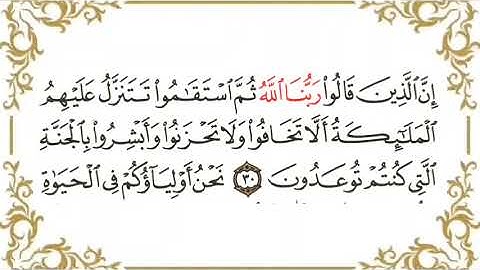 إِنَّ ٱلَّذِينَ قَالُوا۟ رَبُّنَا ٱللَّهُ ثُمَّ ٱسْتَقَـٰمُوا۟ تَتَنَزَّلُ عَلَيْهِمُ
ٱلْمَلَـٰٓئِكَةُ أَلَّا تَخَافُوا۟ وَلَا تَحْزَنُوا۟ وَأَبْشِرُوا۟ بِٱلْجَنَّةِ
ٱلَّتِى كُنتُمْ تُوعَدُونَ ٣٠ نَحْنُ أَوْلِيَآؤُكُمْ فِى ٱلْحَيَوٰةِ